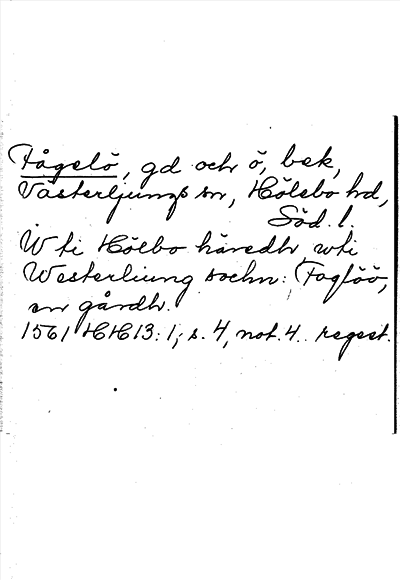 Fågelö, gd och ö, bek,
Västerljungs sn, Hölebo hd,
Söd. l.
W ti Hölbo häredh, wti
Westerliung sochn: Foglöö,
en gårdh.
1561 HH 13: 1, s. 4, not. 4. regest.